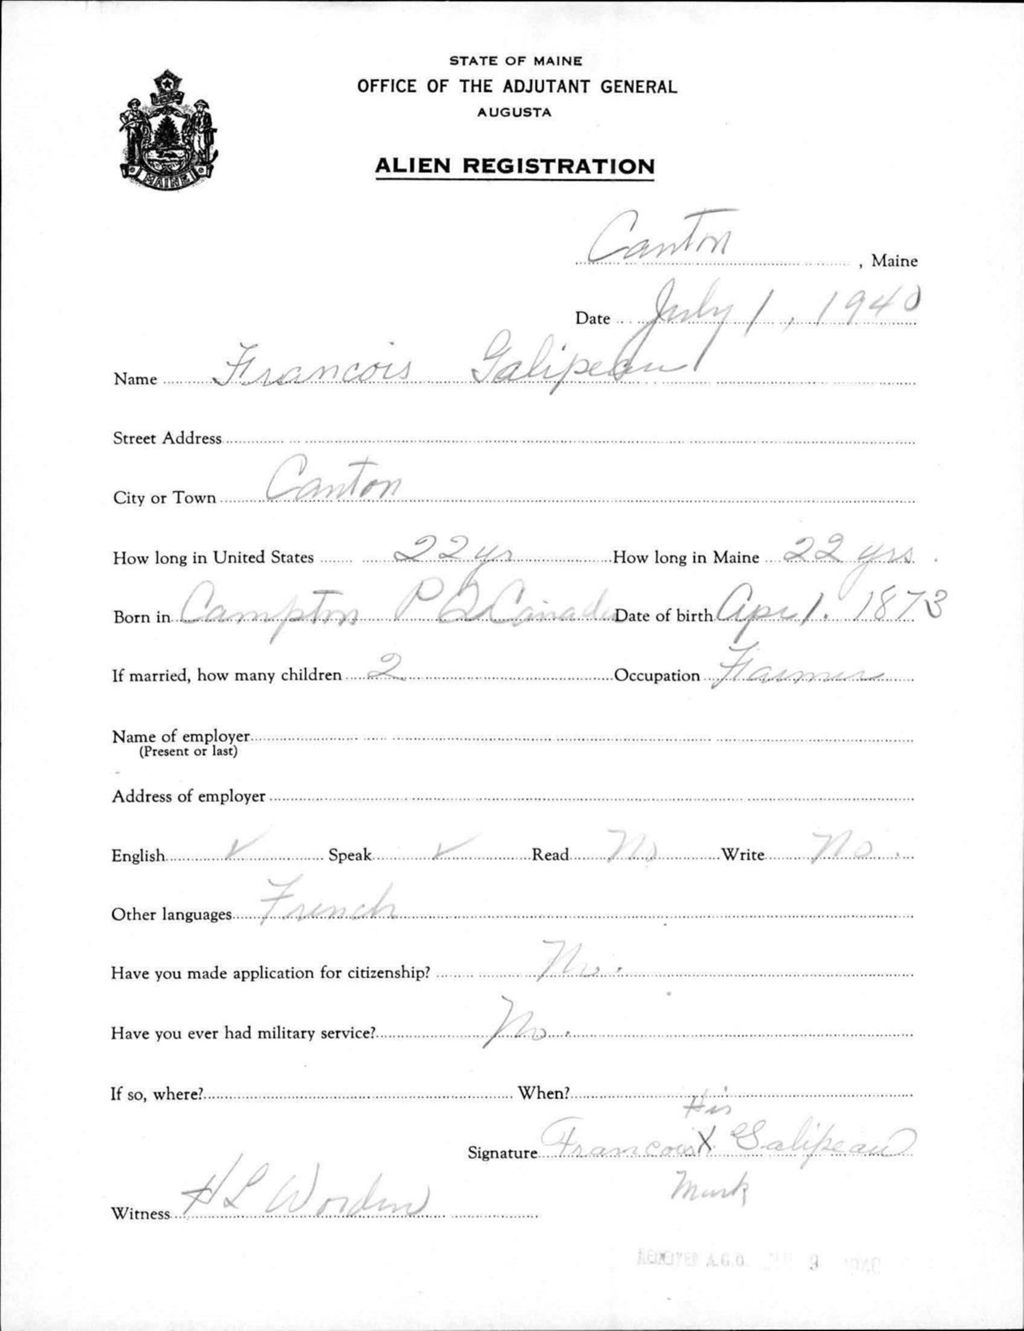 STATE OF MAINE
OFFICE OF THE ADJUTANT GENERAL
AUGUSTA
ALIEN REGISTRATION
MAINE
Canton, Maine
Date July 1, 1940
Name Francois Galipeau
Street Address
City or Town Canton
How long in United States 22 yr How long in Maine 22 yrs.
Born in Campton P Q Canada Date of birth Apr 1. 1873
If married, how many children 2 Occupation Farmer
Name of employer
(Present or last)
Address of employer
English ✓ Speak ✓ Read No Write No.
Other languages French
Have you made application for citizenship? No.
Have you ever had military service? No.
If so, where? When?
His
Signature Francois X Galipeau
Mark
Witness H L Worden
A.G.O. 9 1940